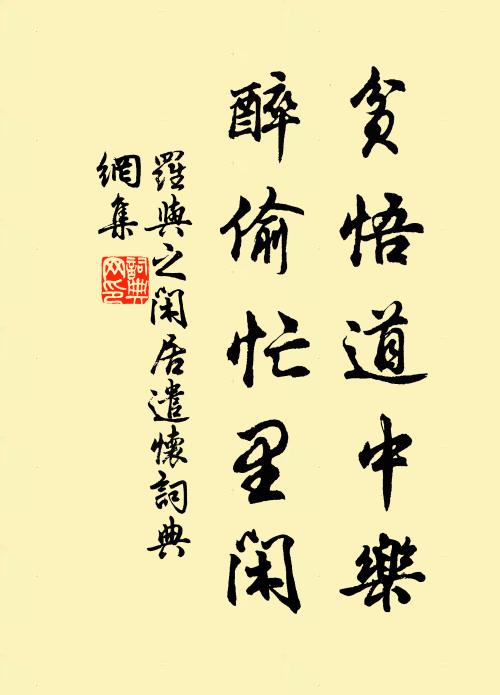 貧悟道中樂
醉偷忙里閑
羅與之閑居遣懷詞典
網集
詞典網印